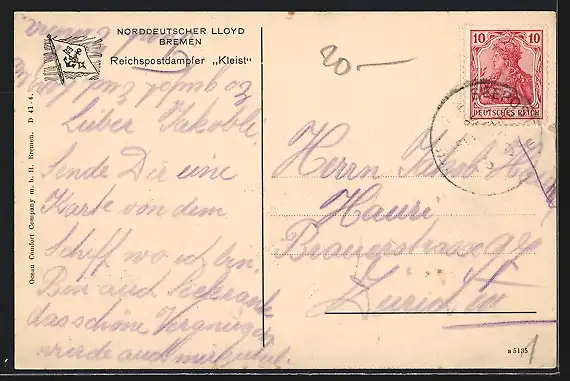 NORDDEUTSCHER LLOYD
BREMEN
Reichspostdampfer „Kleist"
Ocean Comfort Company m. b. H. Bremen. D 41-4.
Lieber Jakobli
Sende Dir eine
Karte von dem
Schiff wo ich bin.
Bin auch Seekrank
das schöne Vergnügen
wurde auch mir zuteil.
20.-
10 10
DEUTSCHES REICH
Herrn Jakob
Hauri
Brauerstrasse 97
Zürich III
a 5135
1